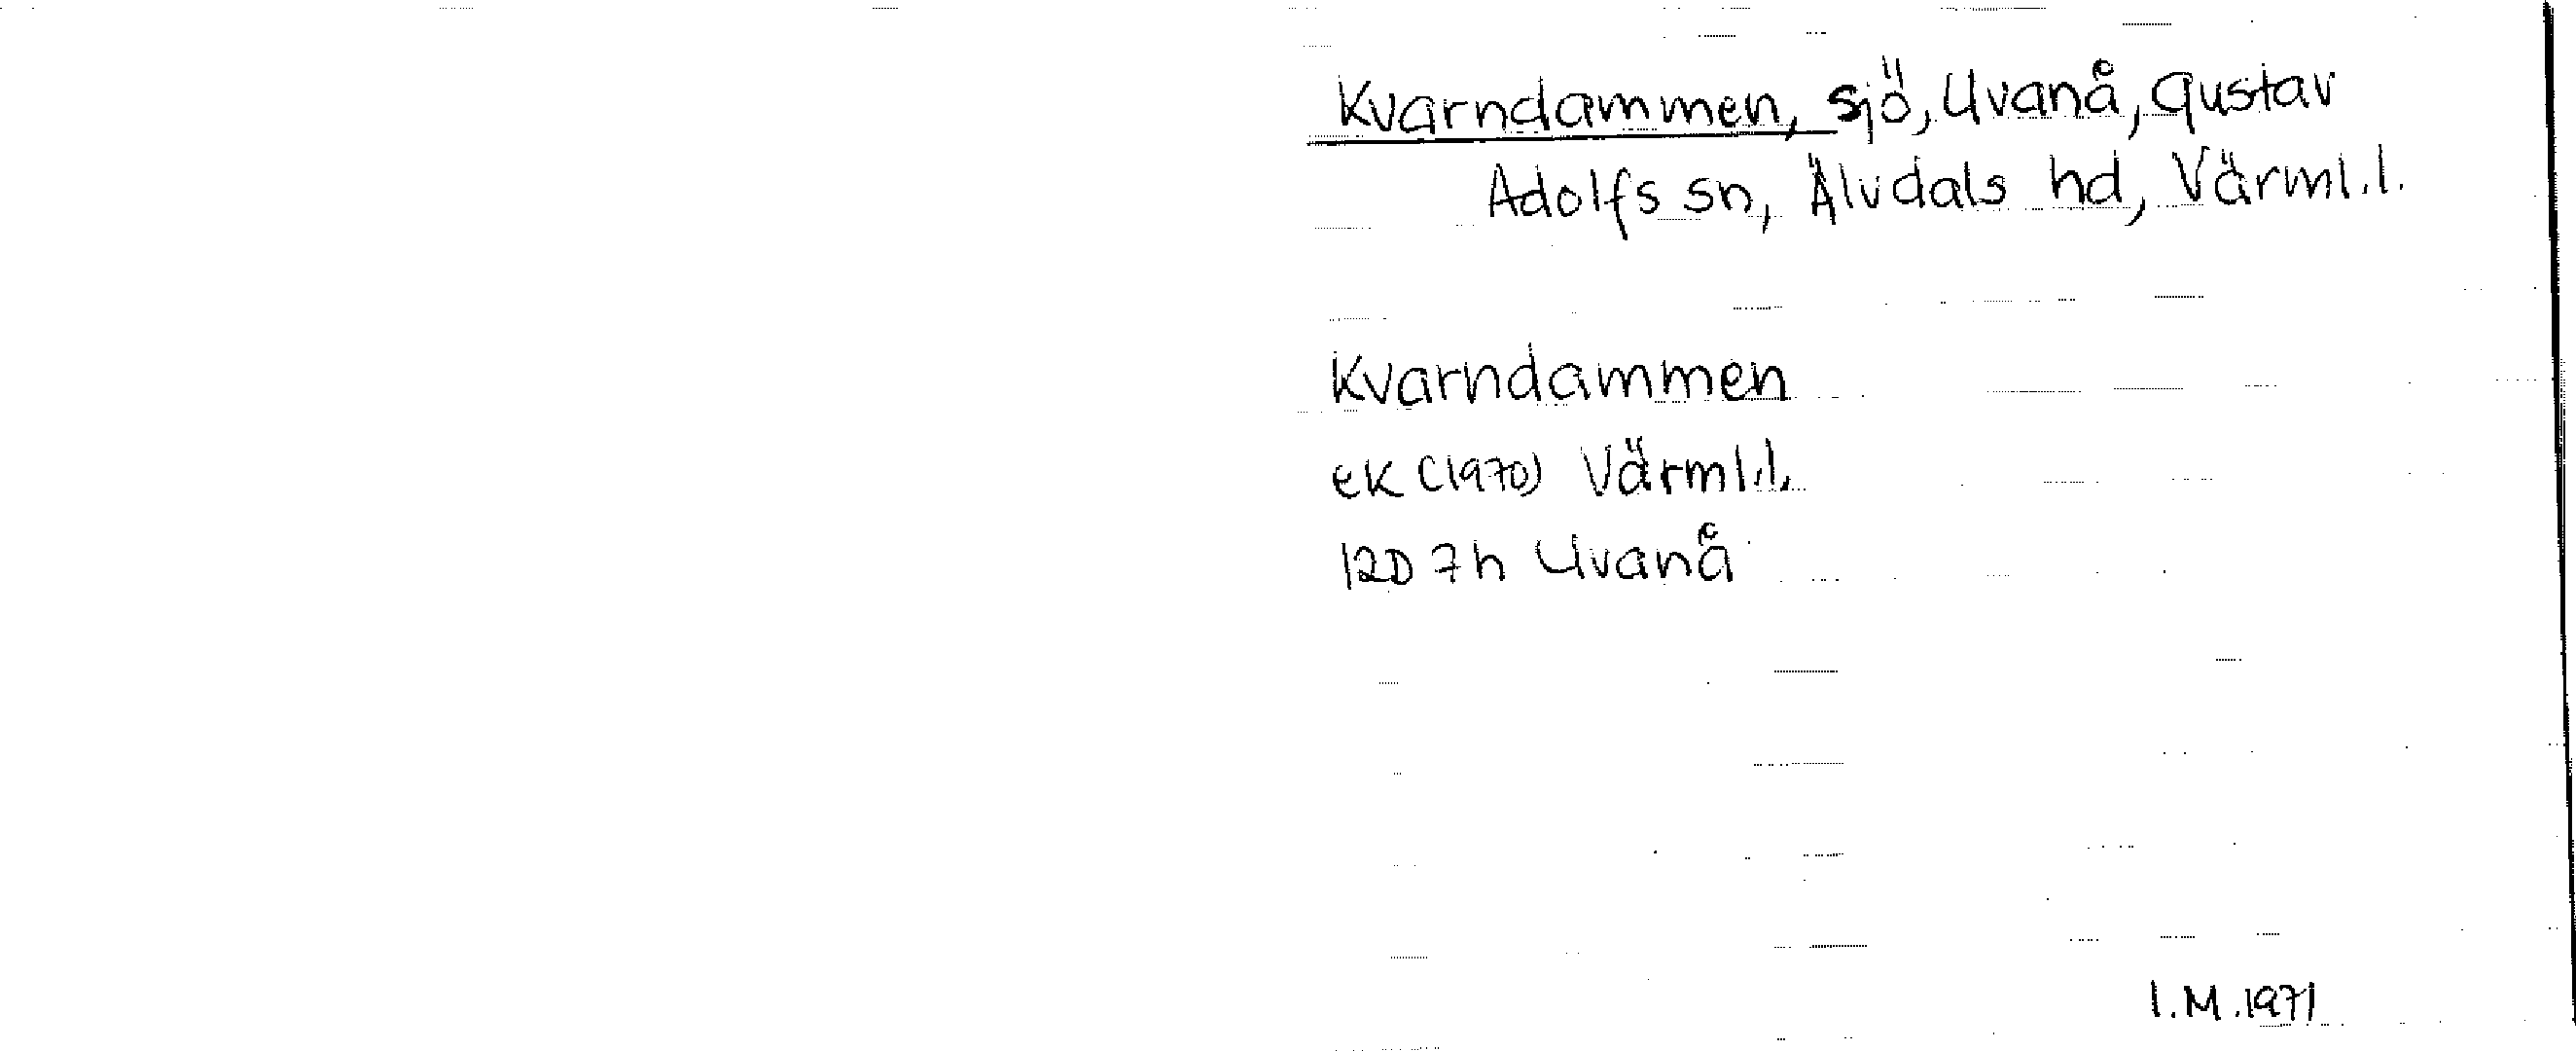 Kvarndammen, sjö, Uvanå, Gustav
Adolfs sn, Älvdals hd, Värml.l.
Kvarndammen
ek (1970) Värml.l.
12D 7h Uvanå
I.M.1971